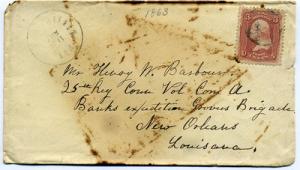 1863
Mr Henry W. Barbour
25th Reg Conn Vol Com A
Banks expedition Grovers Brigade
New Orleans
Louisiana.